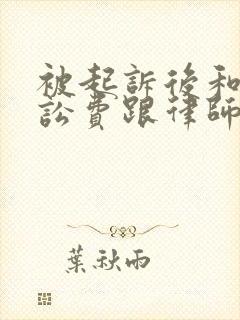 被起訴後和
訟費跟律師
葉秋雨